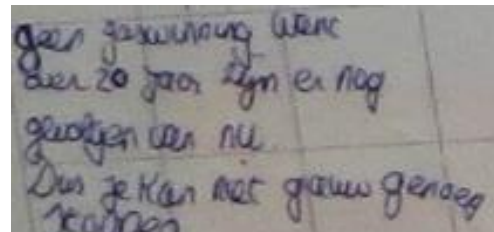 geen gaswinning want
over 20 jaar zijn er nog
gevolgen van nu
Dus je kan niet gauw genoeg
stoppen